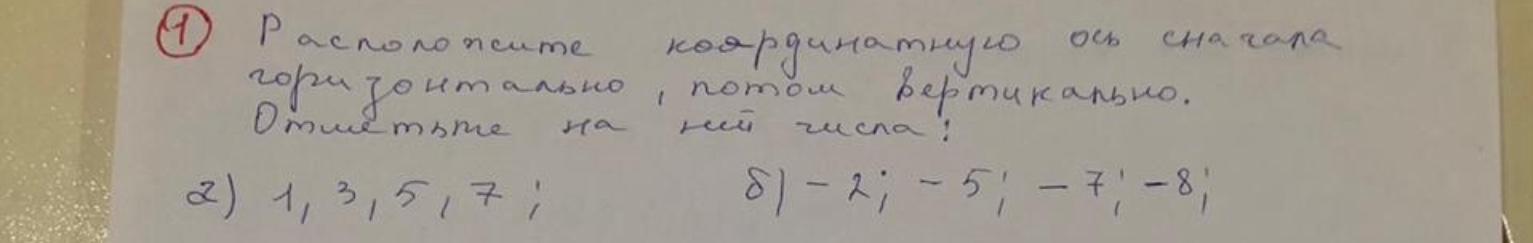 ① Расположите координатную ось сначала
горизонтально, потом вертикально.
Отметьте на ней числа:
а) 1, 3, 5, 7; б) -2; -5; -7; -8;